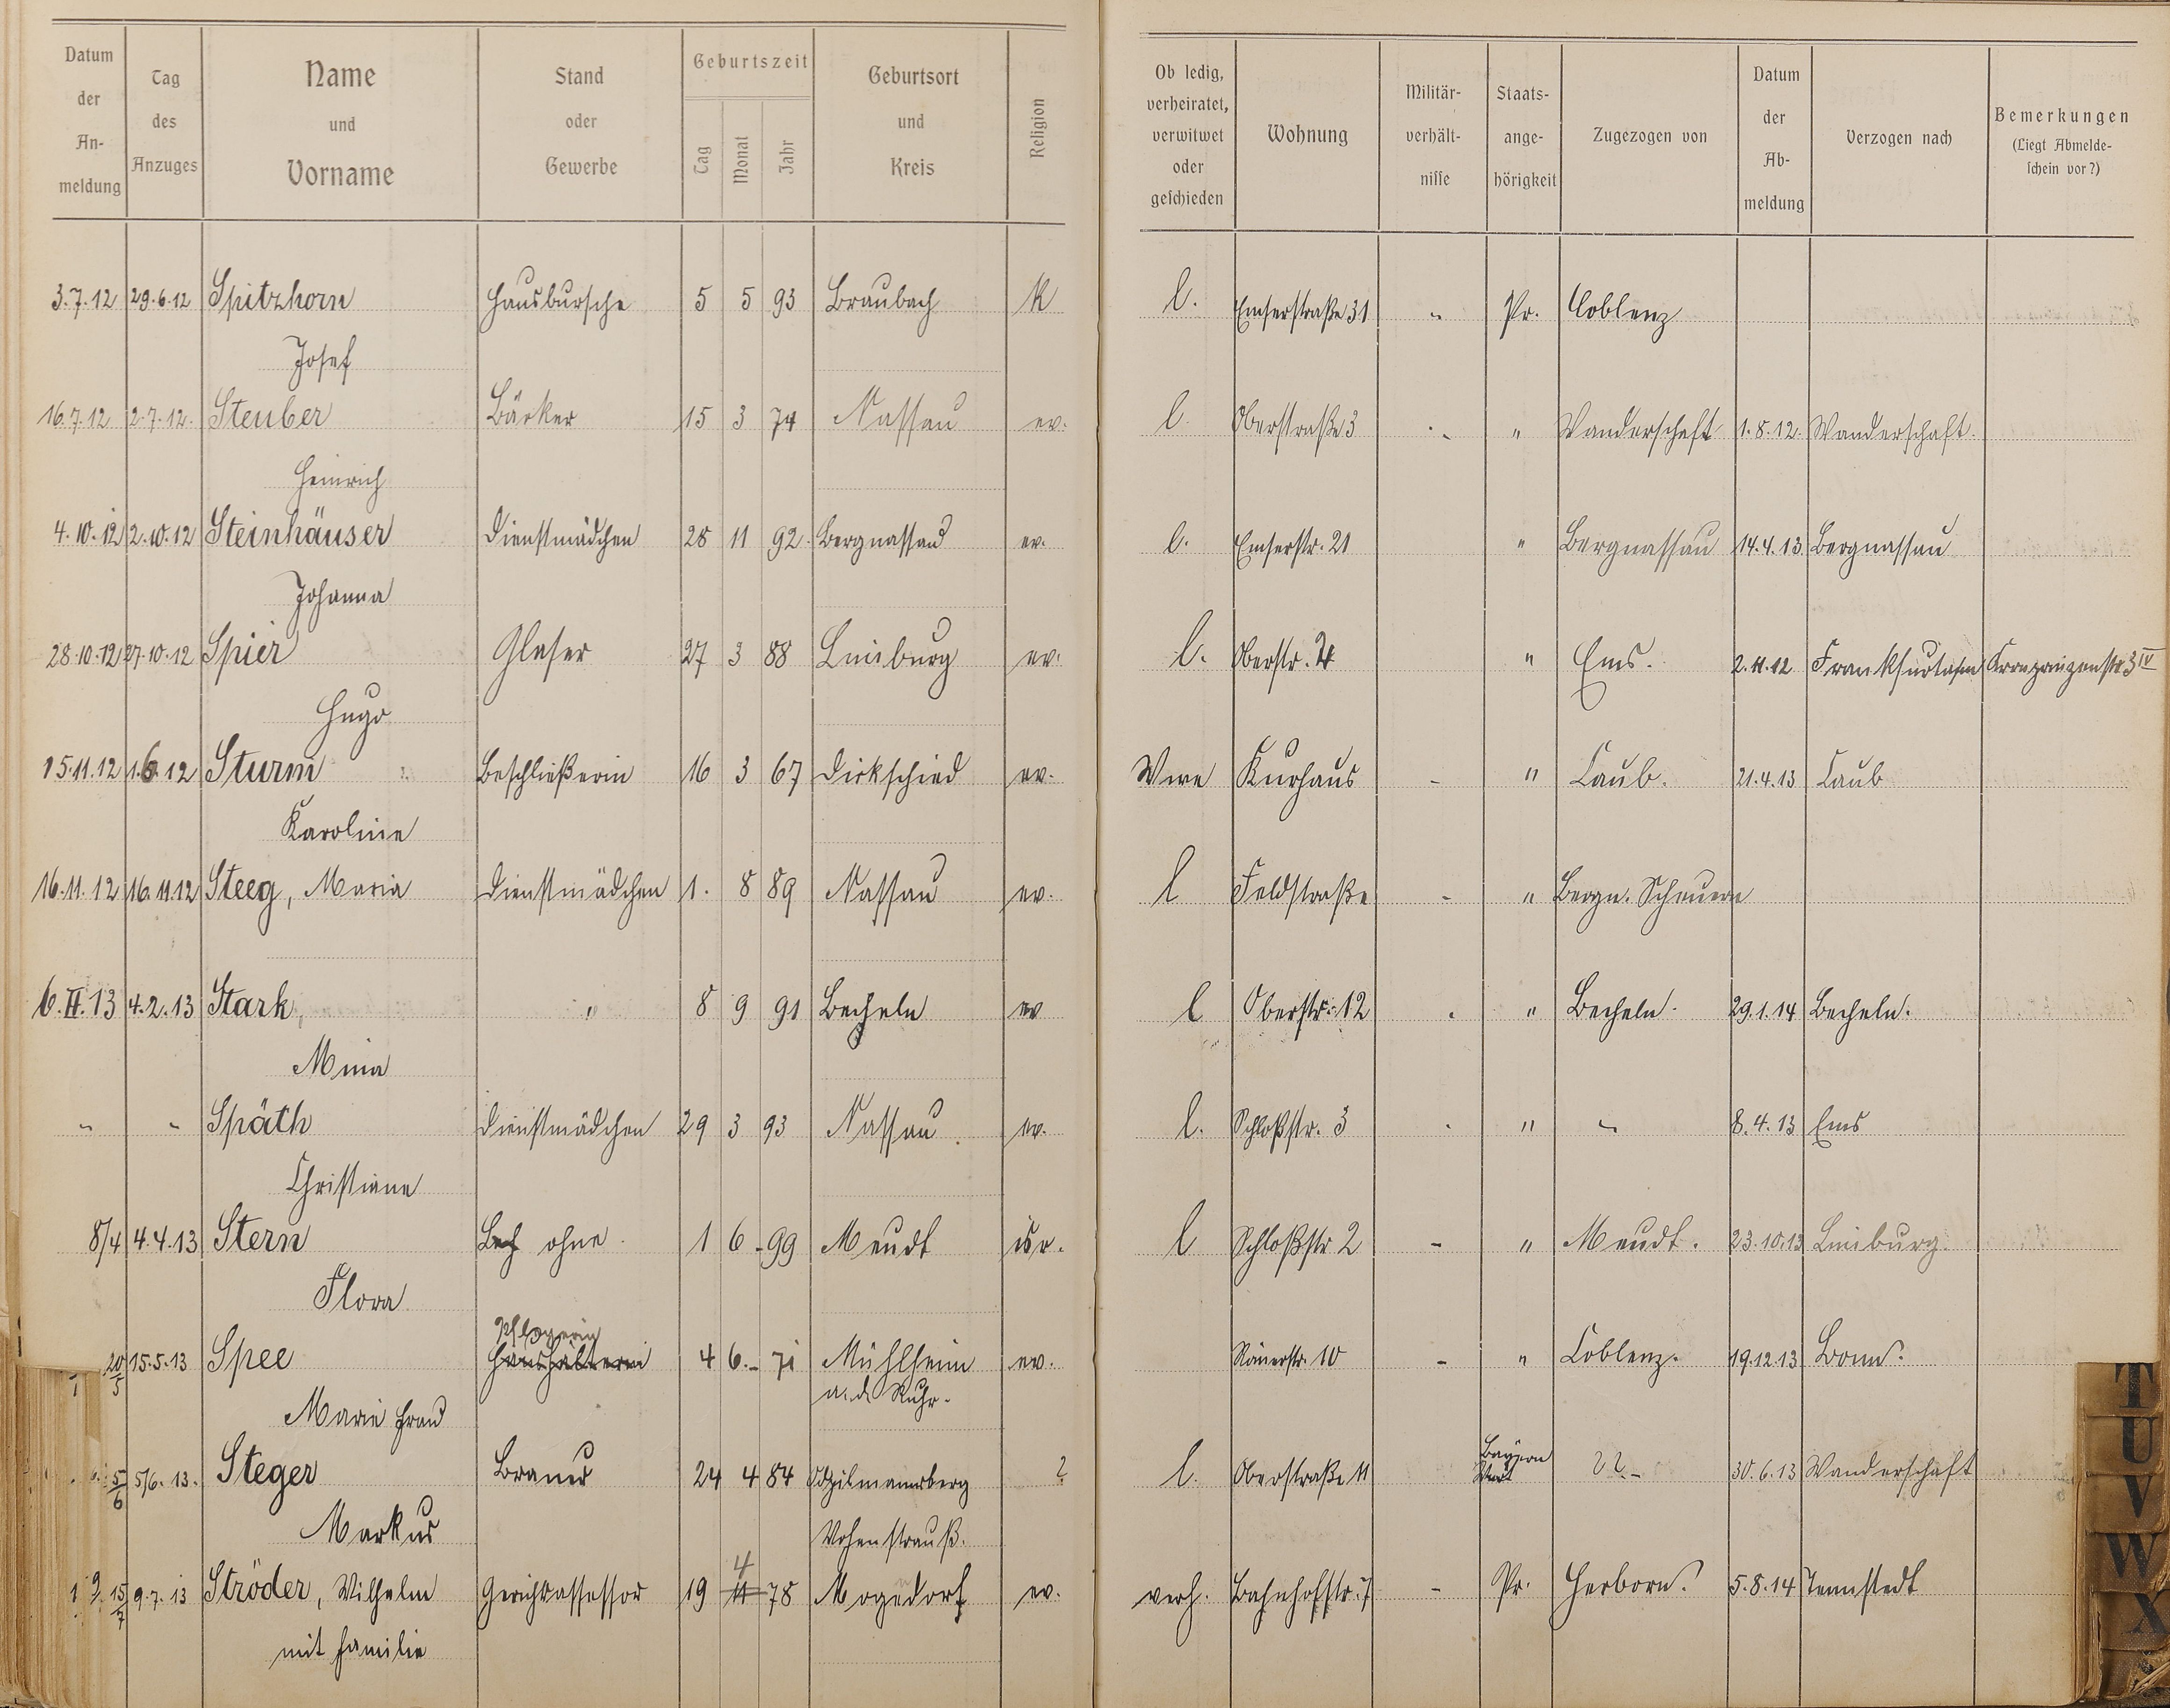 Datum der An- meldung
Tag des Anzuges
Name und Vorname
Stand oder Gewerbe
Geburtszeit
Tag Monat Jahr
Geburtsort und Kreis
Religion
Ob ledig, verheiratet, verwitwet oder geschieden
Wohnung
Militär- verhält- nisse
Staats- ange- hörigkeit
Zugezogen von
Datum der Ab- meldung
Verzogen nach
Bemerkungen (Liegt Abmelde- schein vor?)
3.7.12 29.6.12 Spitzhorn Hausbursche 5 5 93 Braubach k l. Emserstraße 31 " Pr. Coblenz
Josef
16.7.12 2.7.12. Steuber Bäcker 15 3 74 Nassau ev. l Oberstraße 3 " Wanderschaft 1.8.12. Wanderschaft.
Heinrich
4.10.12 2.10.12 Steinhäuser Dienstmädchen 28 11 92. Bergnassau ev. l. Emserstr. 21 " Bergnassau 14.4.13 Bergnassau
Johanna
28.10.12 27.10.12 Spier Glaser 27 3 88 Limburg ev. l. Oberstr. " Ems. 2.11.12 Frankfurt a/m Kronprinzenstr. 3 IV
Hugo
15.11.12 1.6.12 Sturm Beschließerin 16 3 67 Dickschied ev. Wwe Kurhaus - " Caub. 21.4.13 Caub
Karoline
16.11.12 16.11.12 Steeg, Maria Dienstmädchen 1. 8 89 Nassau ev. l Feldstraße - " Bergn. Scheuern
6.II.13 4.2.13 Stark, " 8 9 91 Becheln ev l Oberstr. 12 " Becheln. 29.1.14 Becheln.
Mina
" " Späth Dienstmädchen 29 3 93 Nassau ev. l. Schloßstr. 3 " " 8.4.13 Ems
Christiane
8/4 4.4.13 Stern ohne 1 6 99 Meudt isr. l Schloßstr 2 - " Meudt. 23.10.13 Limburg.
Flora
Pflegerin
20/5 15.5.13 Spee Haushälterin 4 6. 71 Mühlheim ev. Römerstr. 10 - " Coblenz. 19.12.13 Bonn.
a. d. Ruhr.
Marie Frau
5/6 5/6.13. Steger Brauer 24 4 84 ? l. Oberstraße 11 Bayern ?? - 30.6.13 Wanderschaft
Markus Vohenstrauß.
4
15/7 9.7.13 Ströder, Wilhelm Gerichtsassessor 19 11 78 Mogendorf ev. verh. Bahnhofstr. 7 - Pr. Herborn. 5.8.14 Tennstedt
mit Familie
T
U
V
W
X